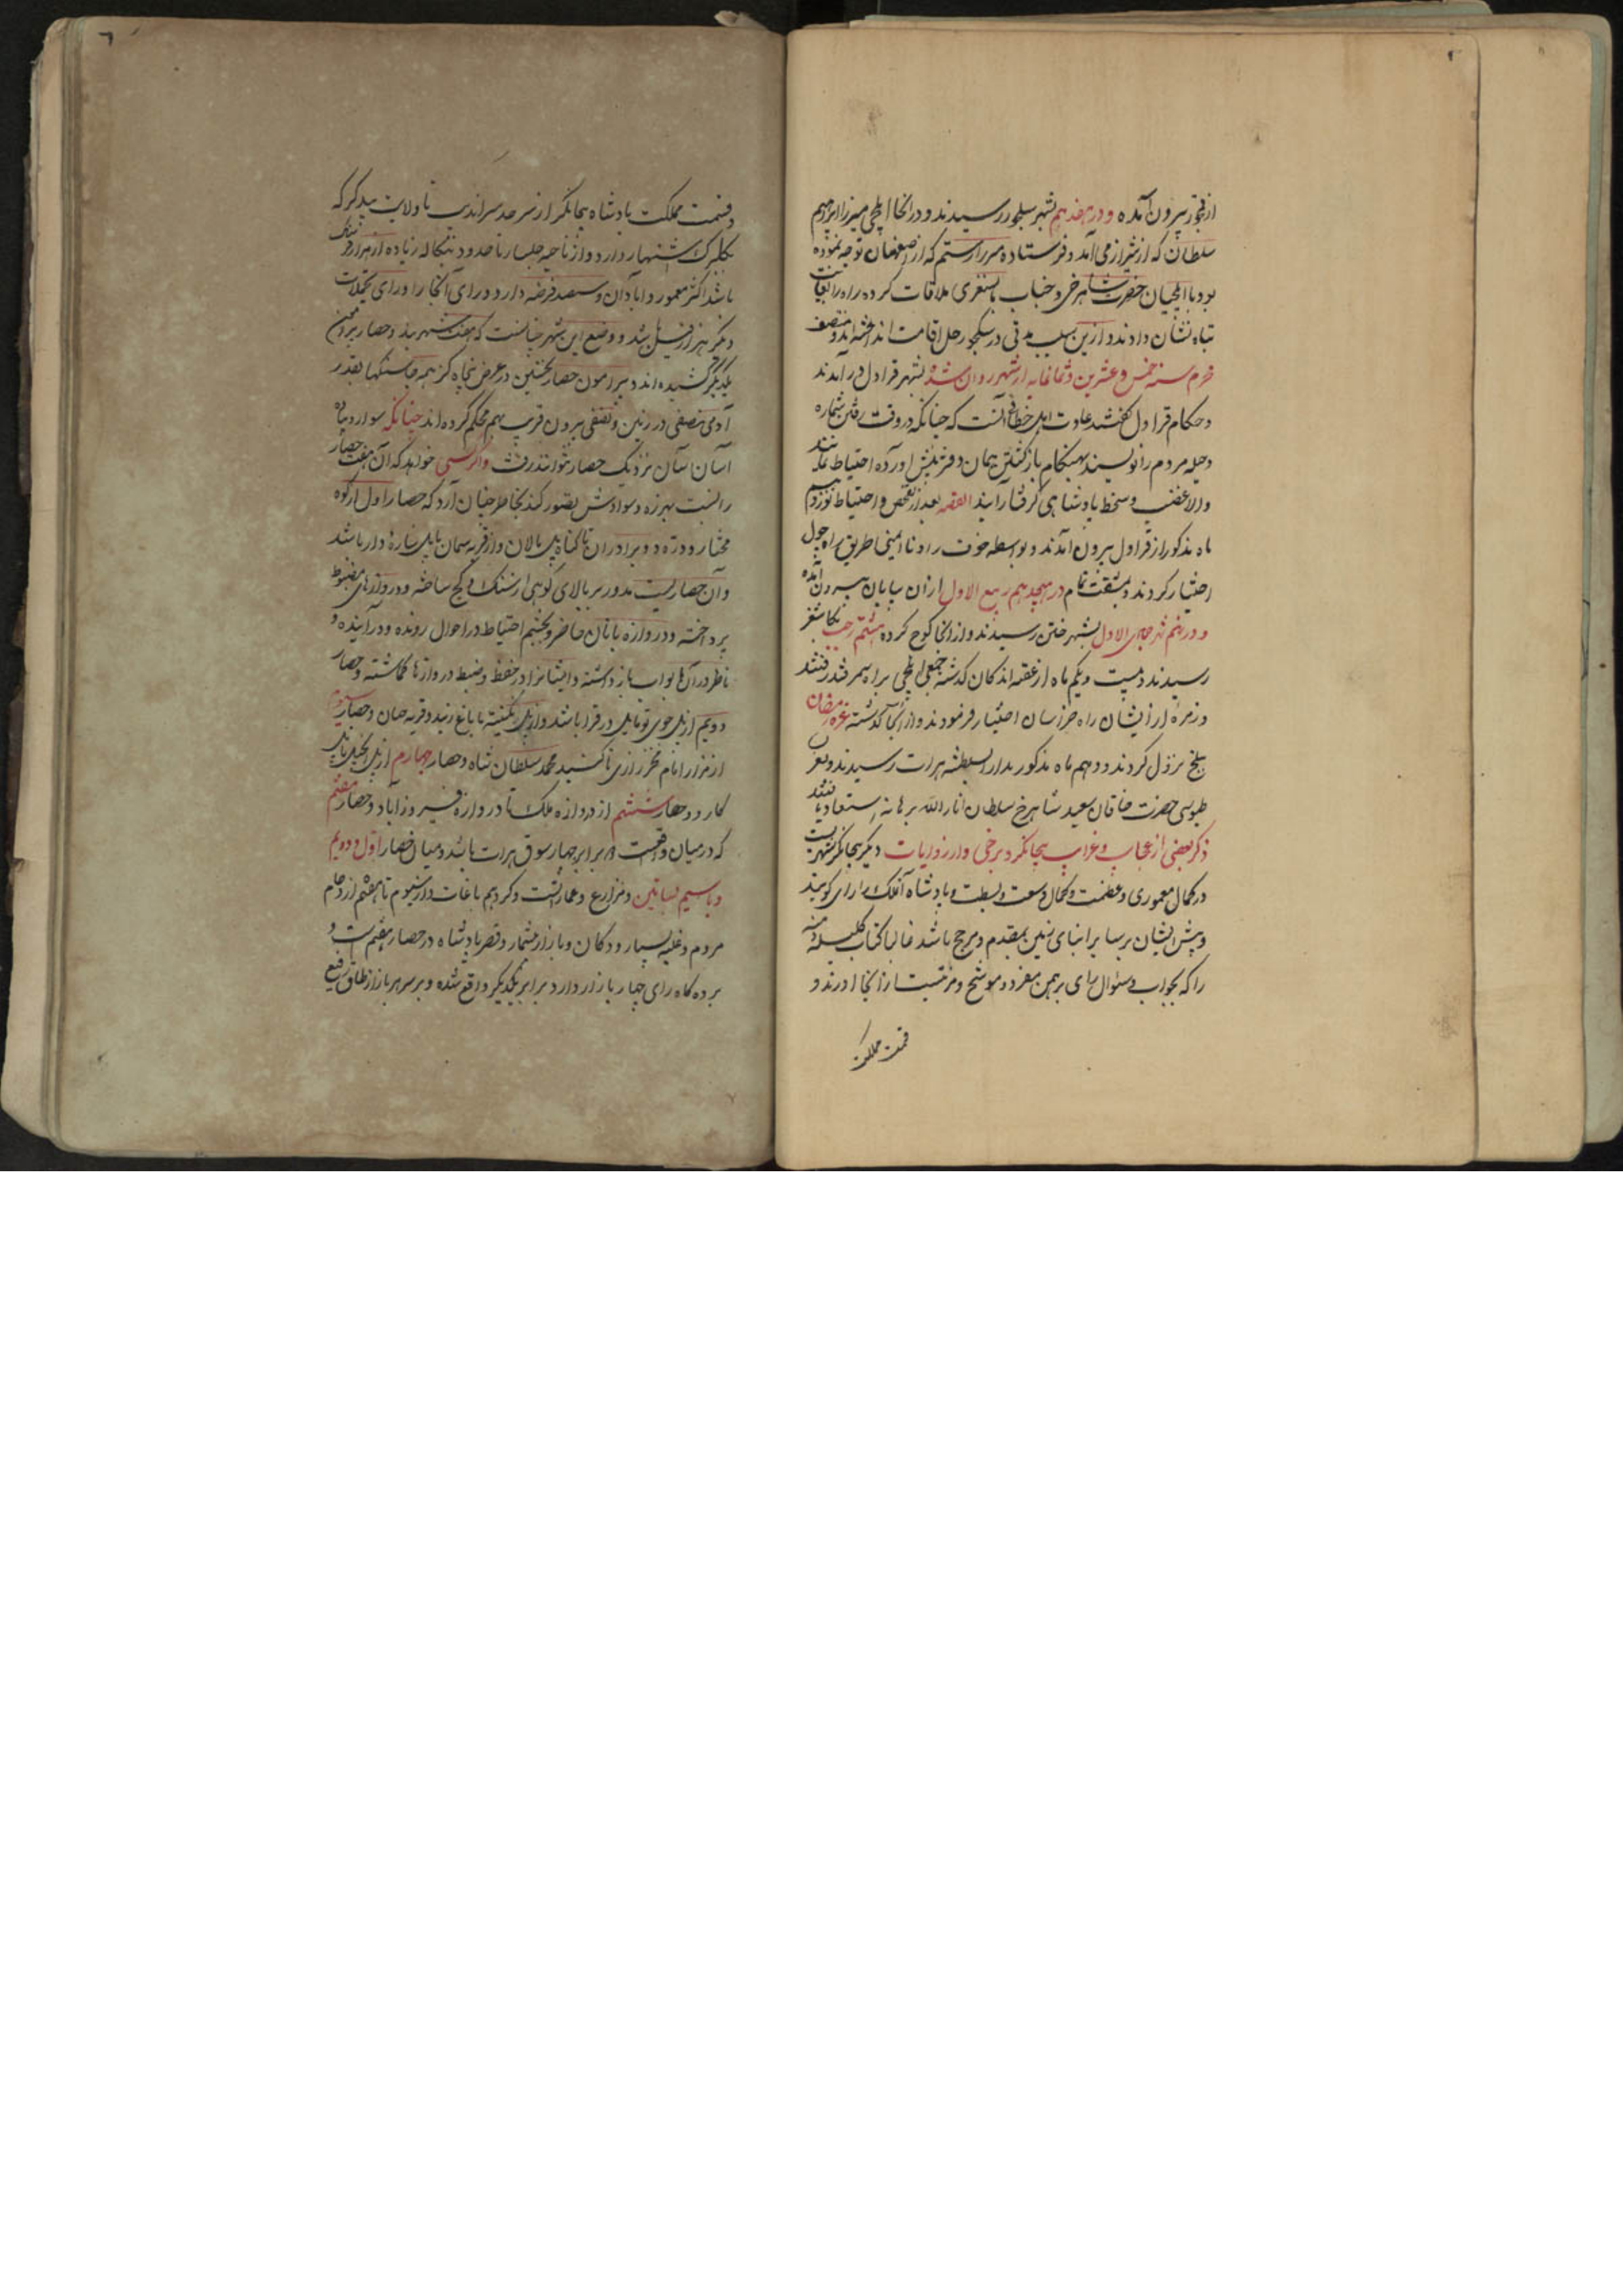 از قمجو بیرون آمده و در هفدهم بشهر سکجو رسیدند و در آنجا ایلچی میرزا ابراهیم
سلطان که از شیراز می آمد و فرستاده میرزا رستم که از اصفهان توجه نموده
بود با ایلچیان حضرت شاهرخی و جناب بایسنغری ملاقات کرده راه را بغایت
تباه نشان دادند و ازین سبب مدتی در سکجو رحل اقامت انداختند و منتصف
محرم سنه خمس و عشرین و ثمانمایه از شهر روان شده بشهر قراول در آمدند
و حکام قراول گفتند عادت اهل خطائی آنست که چنانکه در وقت رفتن شماره
و حلیه مردم را نویسند بهنگام بازگشتن همان دفتر پیش آورده احتیاط نمایند
والا غضب و سخط پادشاهی گرفتار آیند القصه بعد از تفحص و احتیاط نوزدهم
ماه مذکور از قراول بیرون آمدند و بواسطه خوف راه و ناامنی طریق راه چول
اختیار کردند و بمشقت تمام در هیجدهم ربیع الاول از ان بیابان بیرون آمده
و در نهم شهر جمادی الاول بشهر ختن رسیدند و از آنجا کوچ کرده هشتم رجب بکاشغر
رسیدند و بیست و یکم ماه از عقبه اندکان گذشته جمعی ایلچی براه سمرقند رفتند
و زمره از ایشان راه خراسان اختیار فرمودند و از آنجا گذشته غره رمضان
بلخ نزول کردند و دهم ماه مذکور بدار السلطنه هرات رسیدند و بعز
بساطبوسی حضرت خاقان سعید شاهرخ سلطان انار الله برهانه استسعاد یافتند
ذکر بعضی از عجایب و غرایب بیجانگر و برخی وارز و ایات دیگر بیجانگر شهریست
در کمال معموری و عظمت و کمال وسعت و بسطت و پادشاه آنملک را رای گویند
و پیش ایشان بر سایر ابنای زمین مقدم و مرجح باشد غالبا کتاب کلیله و دمنه
را که بجواب و سئوال رای برهمن مفرد و موشح و مرتبست از آنجا آورند و
قسمت مملکت
و قسمت مملکت پادشاه بیجانگر از سرحد سراندیب تا ولایت بیدر که
بکلبرگ اشتهار دارد و از ناحیه جلیبار تا حدود بنگاله زیاده از هزار فرسنگ
باشد اکثر معمور و ابادان و سیصد فرضه دارد و رای آنجا را ورای تجملات
دیگر هزار فیل باشد و وضع این شهر چنانست که هفت شهربند و حصار بیرون
یکدیگر کشیده اند و پیرامون حصار نخستین در عرض پنجاه گز همه جا سنگها بقدر
آدمی نصفی در زمین و نصفی بیرون قریب بهم محکم کرده اند چنانکه سوار و پیاده
آسان آسان نزدیک حصار نتوانند رفت و اگر کسی خواهد که آن هفت حصار
را نسبت بهر زه و سوادش تصور کند بخاطر چنان آرد که حصار اول از کوه
مختار و دره دو برادران تا کناه پل مالان و از قریه سمان تا پل شاره دار باشد
و آن حصاریست مدور بر بالای کوهی از سنگ و گچ ساخته و دروازه های مضبوط
پرداخته و دروازه بانان حاضر و بچشم احتیاط در احوال رونده و در آینده
ناظر در آنها بواب باز داشته و ایشانرا در حفظ و ضبط دروازها گماشته و حصار
دویم از پل جوی نو تا پل در قرا باشد و از پل تکینه تا باغ زبیده و قریه حسان و حصار سیوم
از مزار امام فخر رازی تا گنبد محمد سلطان شاه و حصار چهارم از پل انجیل تا پل
کارد و حصار ششم از دروازه ملک تا دروازه فیروز آباد و حصار هفتم
که در میان واقعست ۱۸ برابر چهار سوق هرات باشد و میان حصار اول و دویم
و با سیم بساتین و مزارع و عمارتست و کردیم باغات و از سیوم تا هفتم ازدحام
مردم و غلبه بسیار و دکان و بازار بیشمار و قصر پادشاه در حصار هفتم است و
بر ده گاه رای چهار بازار دارد برابر یکدیگر واقع شده و بر سر هر بازار طاق رفیع